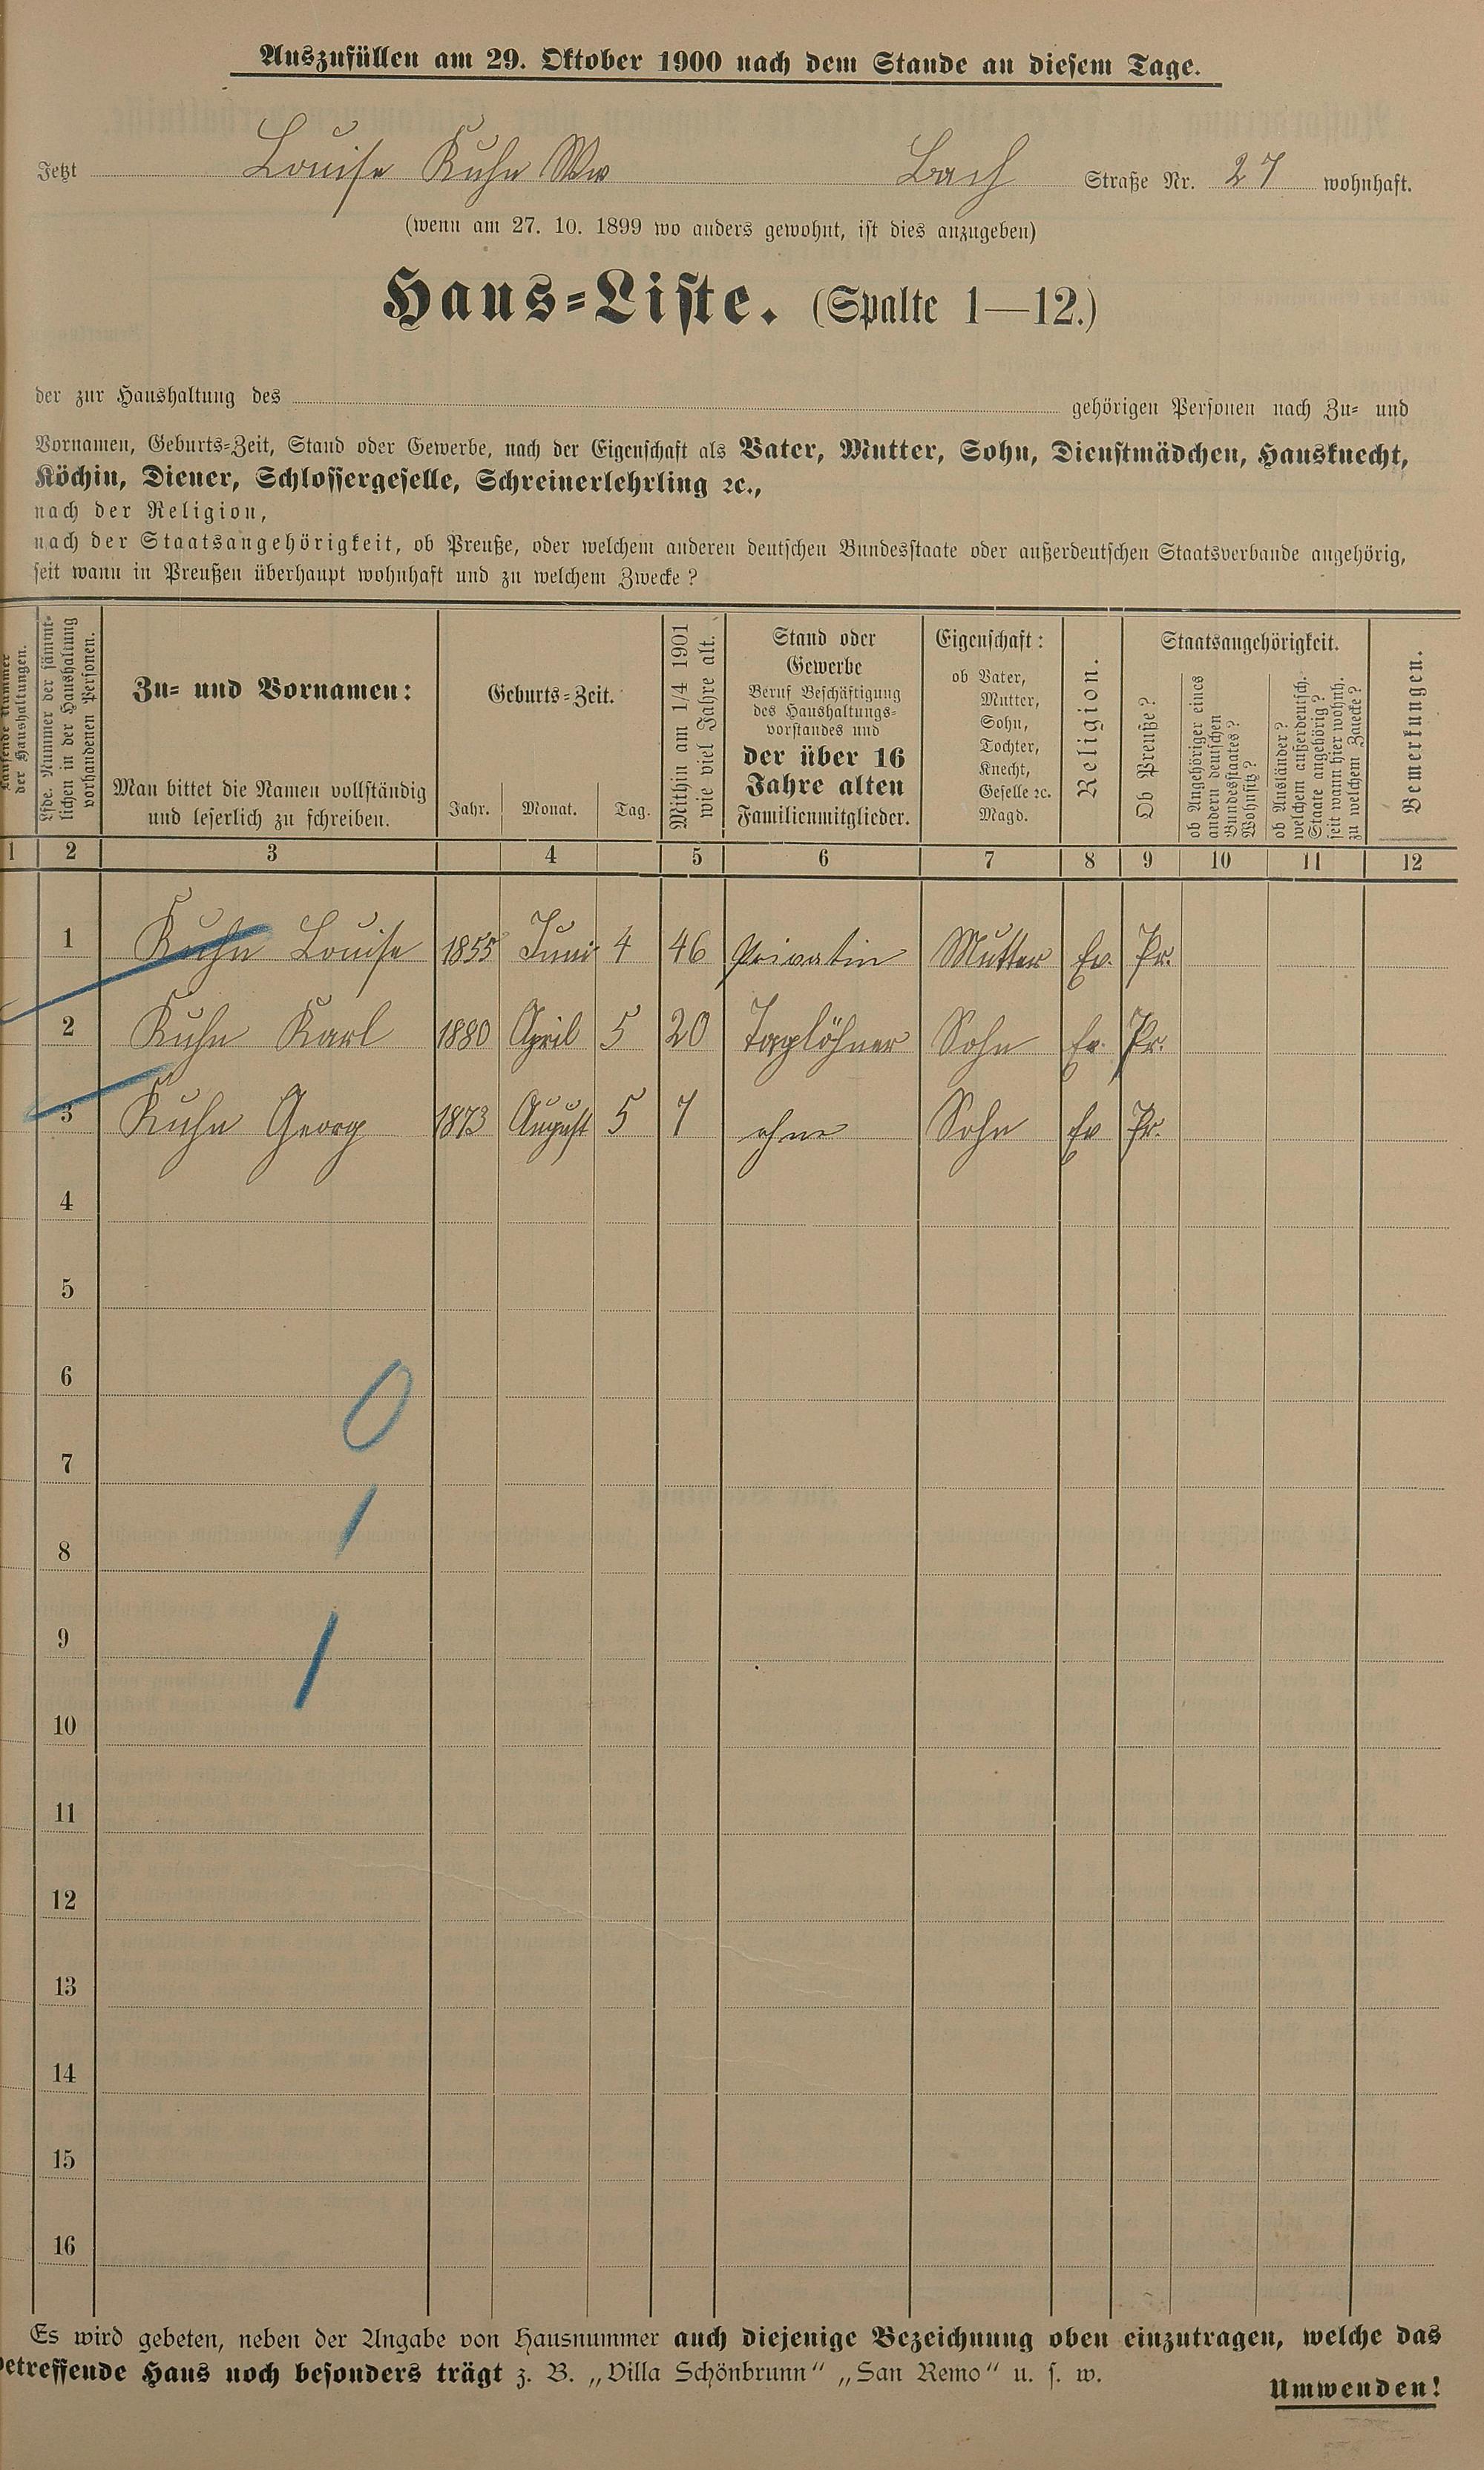 Auszufüllen am 29. Oktober 1900 nach dem Stande an diesem Tage.
Jetzt Louise Kuhn Ww Bach Straße Nr. 27 wohnhaft.
(wenn am 27. 10. 1899 wo anders gewohnt, ist dies anzugeben)
Haus-Liste. (Spalte 1—12.)
der zur Haushaltung des gehörigen Personen nach Zu- und
Vornamen, Geburts-Zeit, Stand oder Gewerbe, nach der Eigenschaft als Vater, Mutter, Sohn, Dienstmädchen, Hausknecht,
Köchin, Diener, Schlossergeselle, Schreinerlehrling ꝛc.,
nach der Religion,
nach der Staatsangehörigkeit, ob Preuße, oder welchem anderen deutschen Bundesstaate oder außerdeutschen Staatsverbande angehörig,
seit wann in Preußen überhaupt wohnhaft und zu welchem Zwecke?
Laufende Nummer
der Haushaltungen.
Lfde. Nummer der sämmt-
lichen in der Haushaltung
vorhandenen Personen.
Zu- und Vornamen:
Man bittet die Namen vollständig
und leserlich zu schreiben.
Geburts-Zeit.
Jahr. Monat. Tag.
Mithin am 1/4 1901
wie viel Jahre alt.
Stand oder
Gewerbe
Beruf Beschäftigung
des Haushaltungs-
vorstandes und
der über 16
Jahre alten
Familienmitglieder.
Eigenschaft:
ob Vater,
Mutter,
Sohn,
Tochter,
Knecht,
Geselle ꝛc.
Magd.
Religion.
Staatsangehörigkeit.
Ob Preuße?
ob Angehöriger eines
andern deutschen
Bundesstaates?
Wohnsitz?
ob Ausländer?
welchem außerdeutsch.
Staate angehörig?
seit wann hier wohnh.
zu welchem Zwecke?
Bemerkungen.
1 2 3 4 5 6 7 8 9 10 11 12
1 Kuhn Louise 1855 Juni 4 46 Privatin Mutter Ev. Pr.
2 Kuhn Karl 1880 April 5 20 Taglöhner Sohn Ev. Pr.
3 Kuhn Georg 1873 August 5 7 ohne Sohn Ev Pr.
4
5
6
0
7
1
8
9
1
10
11
12
13
14
15
16
Es wird gebeten, neben der Angabe von Hausnummer auch diejenige Bezeichnung oben einzutragen, welche das
betreffende Haus noch besonders trägt z. B. „Villa Schönbrunn" „San Remo" u. s. w.
Umwenden!